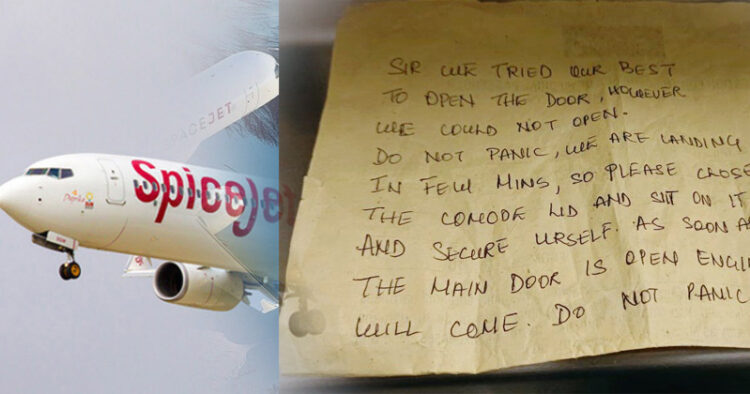 SpiceJet
SIR WE TRIED OUR BEST
TO OPEN THE DOOR, HOWEVER
WE COULD NOT OPEN.
DO NOT PANIC, WE ARE LANDING
IN FEW MINS, SO PLEASE CLOSE
THE COMODE LID AND SIT ON IT
AND SECURE URSELF. AS SOON AS
THE MAIN DOOR IS OPEN ENGI
WILL COME. DO NOT PANIC